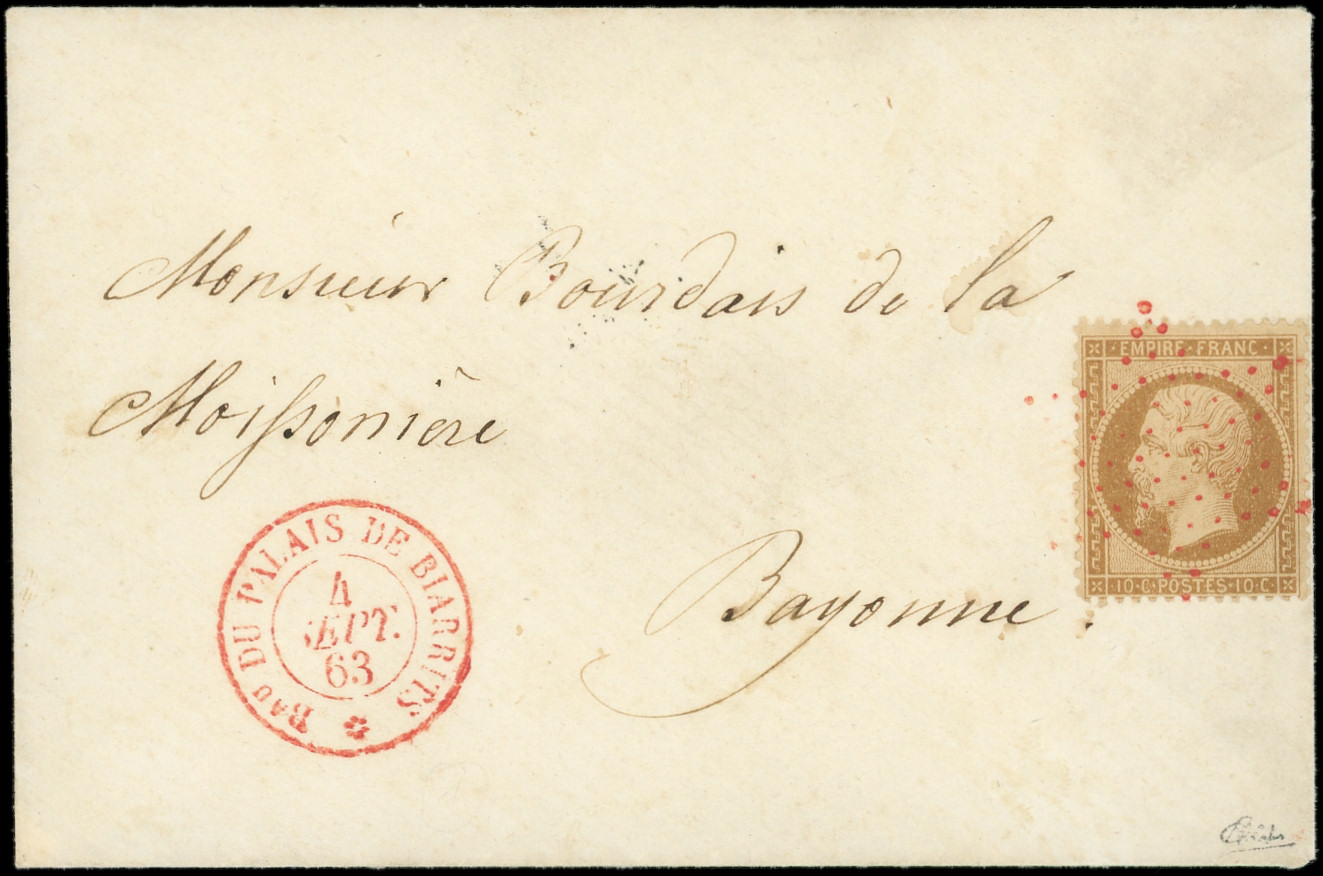 Monsieur Bourdais de la
Moissonière
Bayonne.
EMPIRE · FRANC ·
10 · C · POSTES · 10 · C ·
Bau DU PALAIS DE BIARRITS
4
SEPT.
63